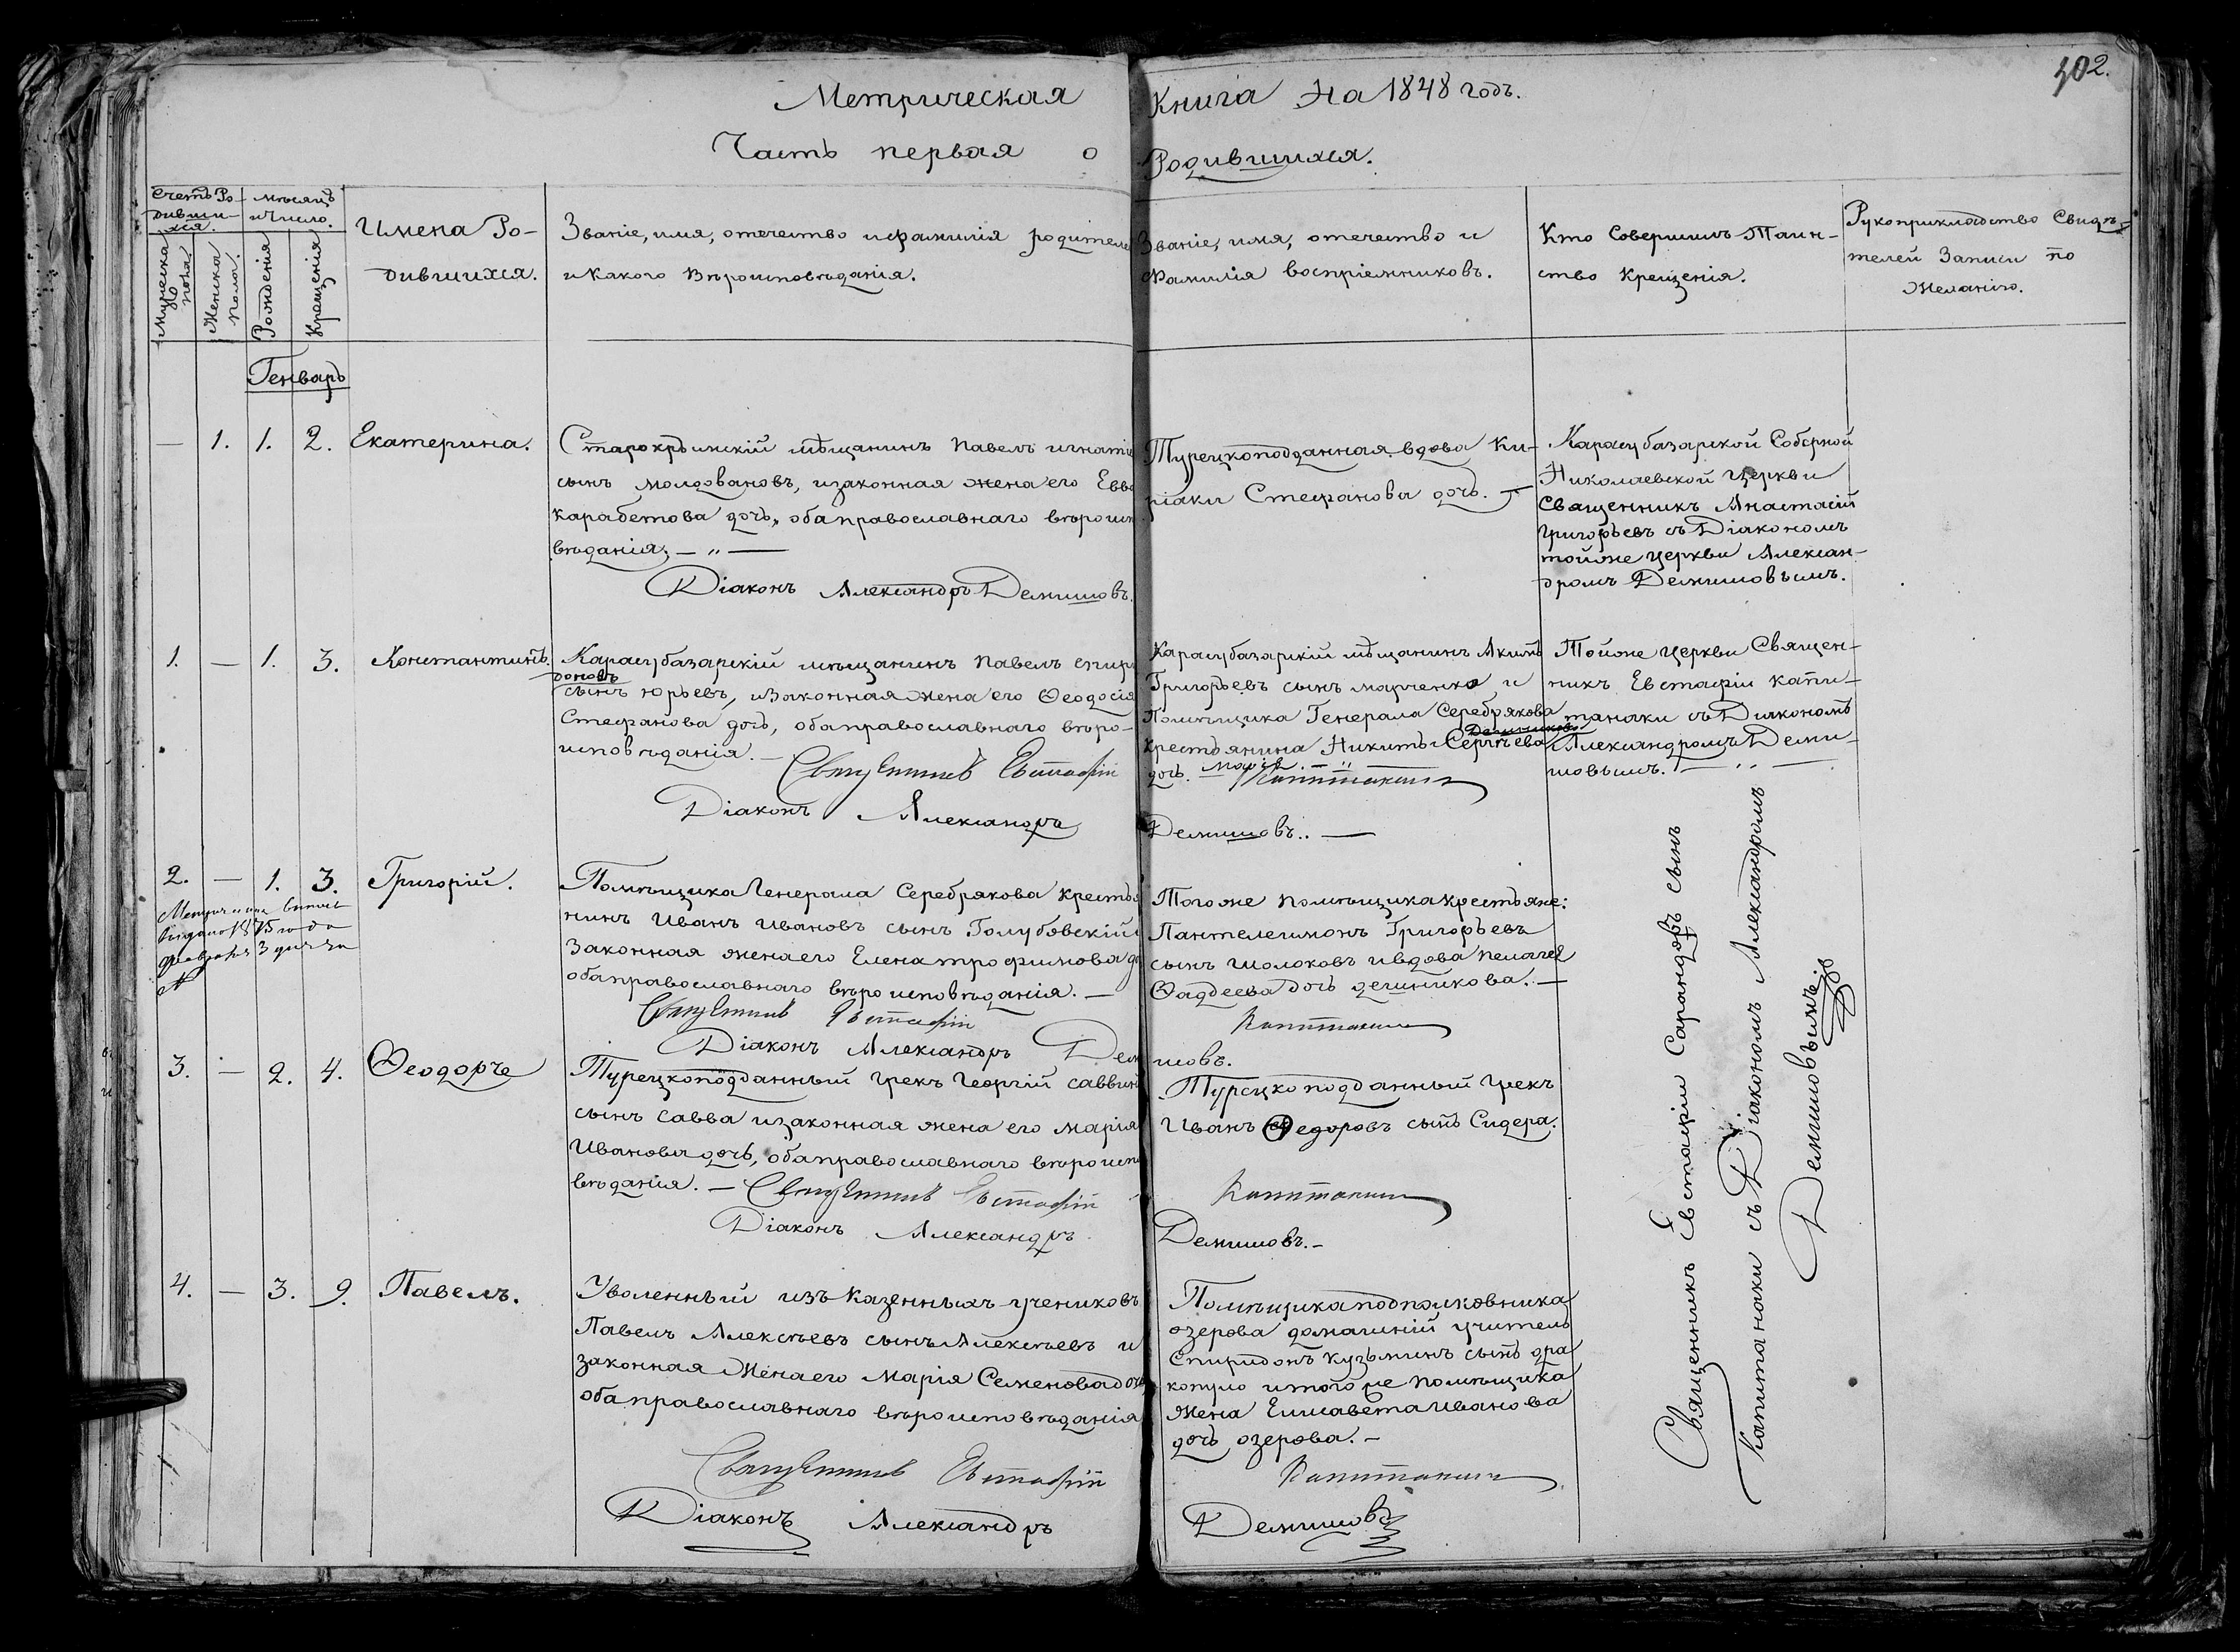 402.
Метрическая Книга На 1848 годъ.
Часть первая о Родившихся.
Счетъ Ро-
дивши-
хся.
мѣсяцъ
и Число.
Мужеска
пола
Женска
Пола.
Рожденія
Крещенія
Имена Ро-
дившихся.
Званіе, имя, отечество и фамилія родителе
и какого Вѣроисповѣданія.
Званіе, имя, отечество и
Фамилія воспріемниковъ.
Кто Совершилъ Таин-
ство Крещенія.
Рукоприкладство Свидѣ-
телей Записи по
Желанію.
Генварь
— 1. 1. 2. Екатерина.
Старокрымскій мѣщанинъ Павелъ игнаті
сынъ молдовановъ, и законная жена его Евдо
карабетова дочь, оба православнаго вѣроисп
вѣданія, — " —
Діаконъ Александръ Демишовъ.
Турецкоподданная вдова Ки-
ріаки Стефанова дочь. —
Карасубазарской Соборной
Николаевской Церкви
Священникъ Анастасій
Григорьевъ съ Діакономъ
тойже церкви Алексан-
дромъ Демишовымъ.
1. — 1. 3. Константинъ.
Карасубазарскій мѣщанинъ Павелъ спири
доновъ
сынъ юрьевъ, и законная жена его Ѳеодосія
Стефанова дочь, оба православнаго вѣро-
исповѣданія. —
Священникъ Евстафій Капитанаки
Діаконъ Александръ Демишовъ.. —
Карасубазарскій мѣщанинъ Якимъ
Григорьевъ сынъ марченко и
Помѣщика Генерала Серебрякова
крестьянина Никиты Сергѣева
дочь. Марія. — " —
Тойже церкви Священ-
никъ Евстафіи капи-
танаки съ Діякономъ
Александромъ Деми-
шовымъ. — " —
2. — 1. 3. Григорій.
Помѣщика Генерала Серебрякова крестья
нинъ Иванъ Ивановъ сынъ Голубовскій
Законная жена его Елена трофимова до
оба православнаго вѣроисповѣданія. —
Священникъ Евстафій Капитанаки
Діаконъ Александръ Демишовъ.
Тогоже помѣщика крестьяне:
Пантелеимонъ Григорьевъ
сынъ шолоховъ и вдова пелагея
Ѳаддеева дочь
3. — 2. 4. Ѳеодоръ
Турецкоподданный грекъ Георгій саввин
сынъ савва и законная жена его марія
Иванова дочь, оба православнаго вѣроисп
вѣданія. — Священникъ Евстафій Капитанаки
Діаконъ Александръ Демишовъ. —
Турецкоподданный грекъ
Иванъ Ѳедоровъ сынъ Сидера.
4. — 3. 9. Павелъ.
Уволенный изъ казенныхъ учениковъ
Павелъ Алексѣевъ сынъ Алексѣевъ и
законная Жена его Марія Семенова доч
оба православнаго вѣроисповѣданія
Священникъ Евстафій Капитанаки
Діаконъ Александръ Демишовъ
Помѣщика подполковника
озерова домашній учитель
Спиридонъ кузьминъ сынъ дра
копуло и тогоже помѣщика
Жена Елисавета Иванова
дочь озерова. —
Священникъ Евстафіи Сарандовъ сынъ
Капитанаки съ Діакономъ Александромъ
Демишовымъ